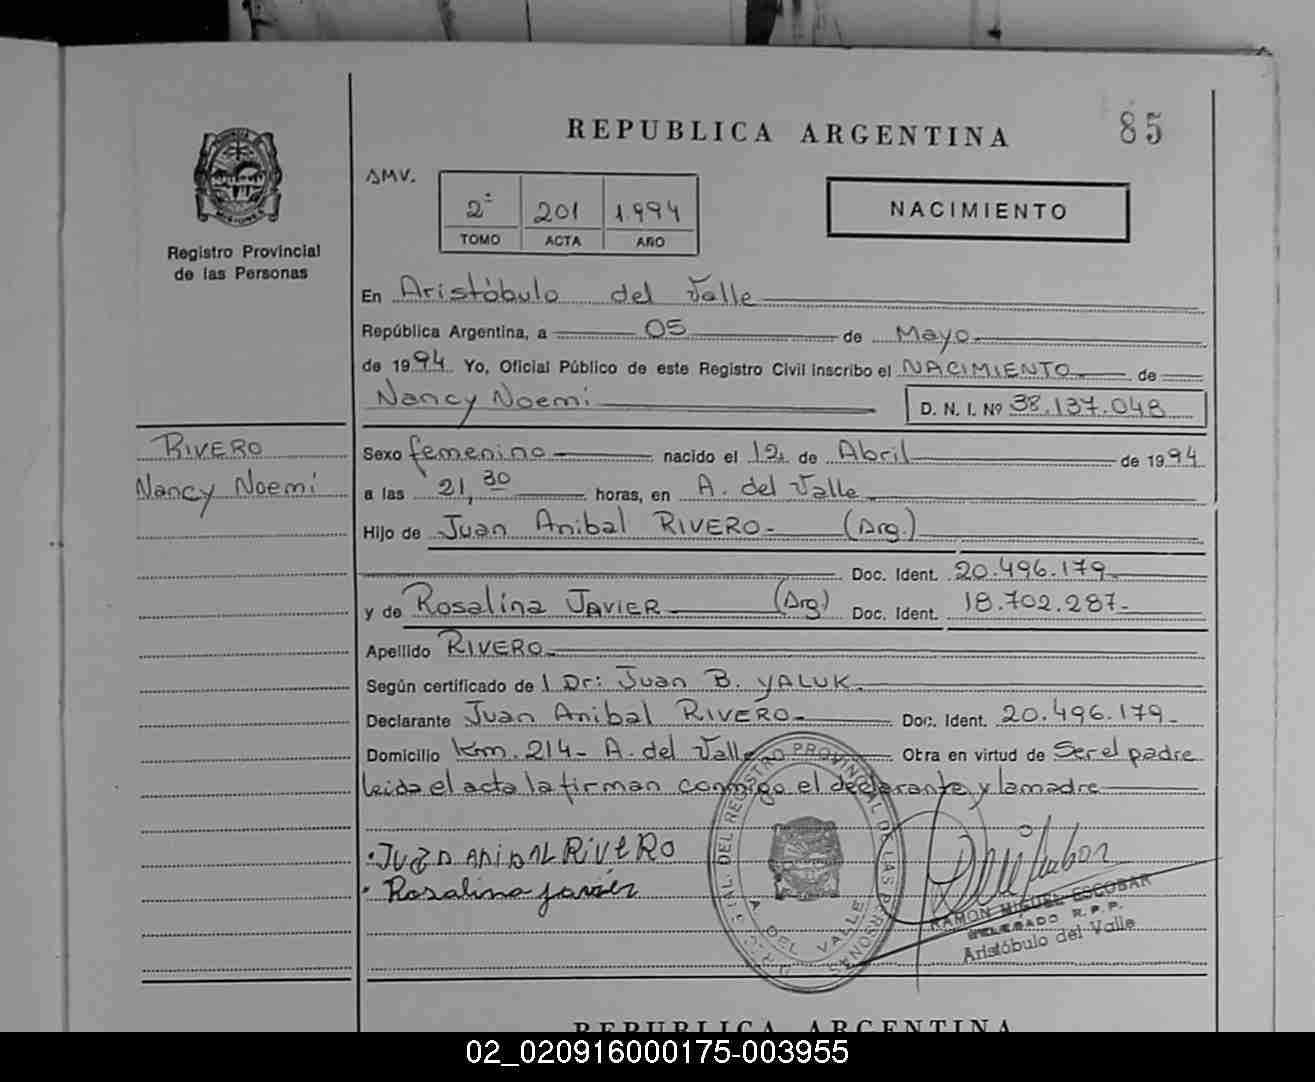 REPUBLICA ARGENTINA
85
AMV.
2º 201 1.994
TOMO ACTA AÑO
NACIMIENTO
MISIONES
Registro Provincial
de las Personas
En Aristóbulo del Valle
República Argentina, a 05 de Mayo
de 1994 Yo, Oficial Público de este Registro Civil inscribo el NACIMIENTO de
Nancy Noemi D. N. I. Nº 38.137.048
RIVERO
Nancy Noemi
Sexo femenino nacido el 12 de Abril de 1994
a las 21,30 horas, en A. del Valle
Hijo de Juan Anibal RIVERO (Arg.)
Doc. Ident. 20.496.179
y de Rosalina JAVIER (Arg) Doc. Ident. 18.702.287
Apellido RIVERO
Según certificado de Dr: Juan B. YALUK
Declarante Juan Anibal RIVERO Doc. Ident. 20.496.179
Domicilio Km. 214 - A. del Valle Otra en virtud de Ser el padre
leida el acta la firman conmigo el declarante y la madre
JUAN ANIBAL RIVERO
Rosalina Javier
DEL REGISTRO PROVINCIAL DE LAS PERSONAS
A. DEL VALLE
RAMON MIGUEL ESCOBAR
DELEGADO R.P.P.
Aristóbulo del Valle
REPUBLICA ARGENTINA
02_020916000175-003955